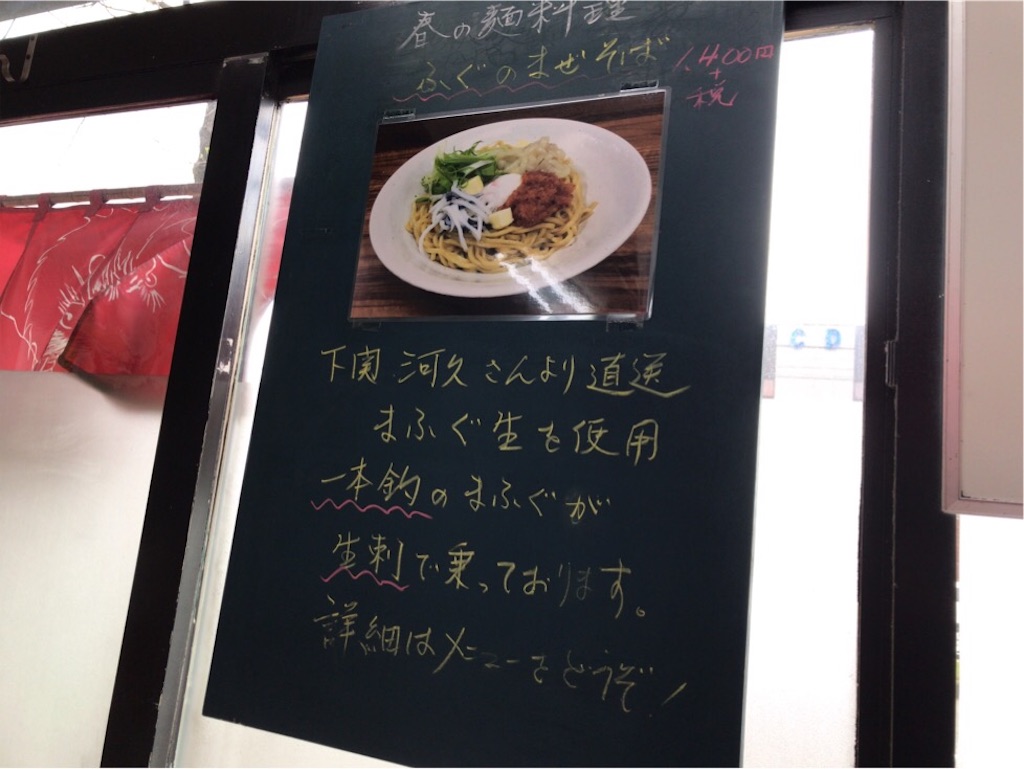 春の麺料理
ふぐのまぜそば 1,400円
+
税
下関 河久さんより直送
まふぐ生を使用
一本釣のまふぐが
生刺で乗っております。
詳細はメニューをどうぞ!
CD